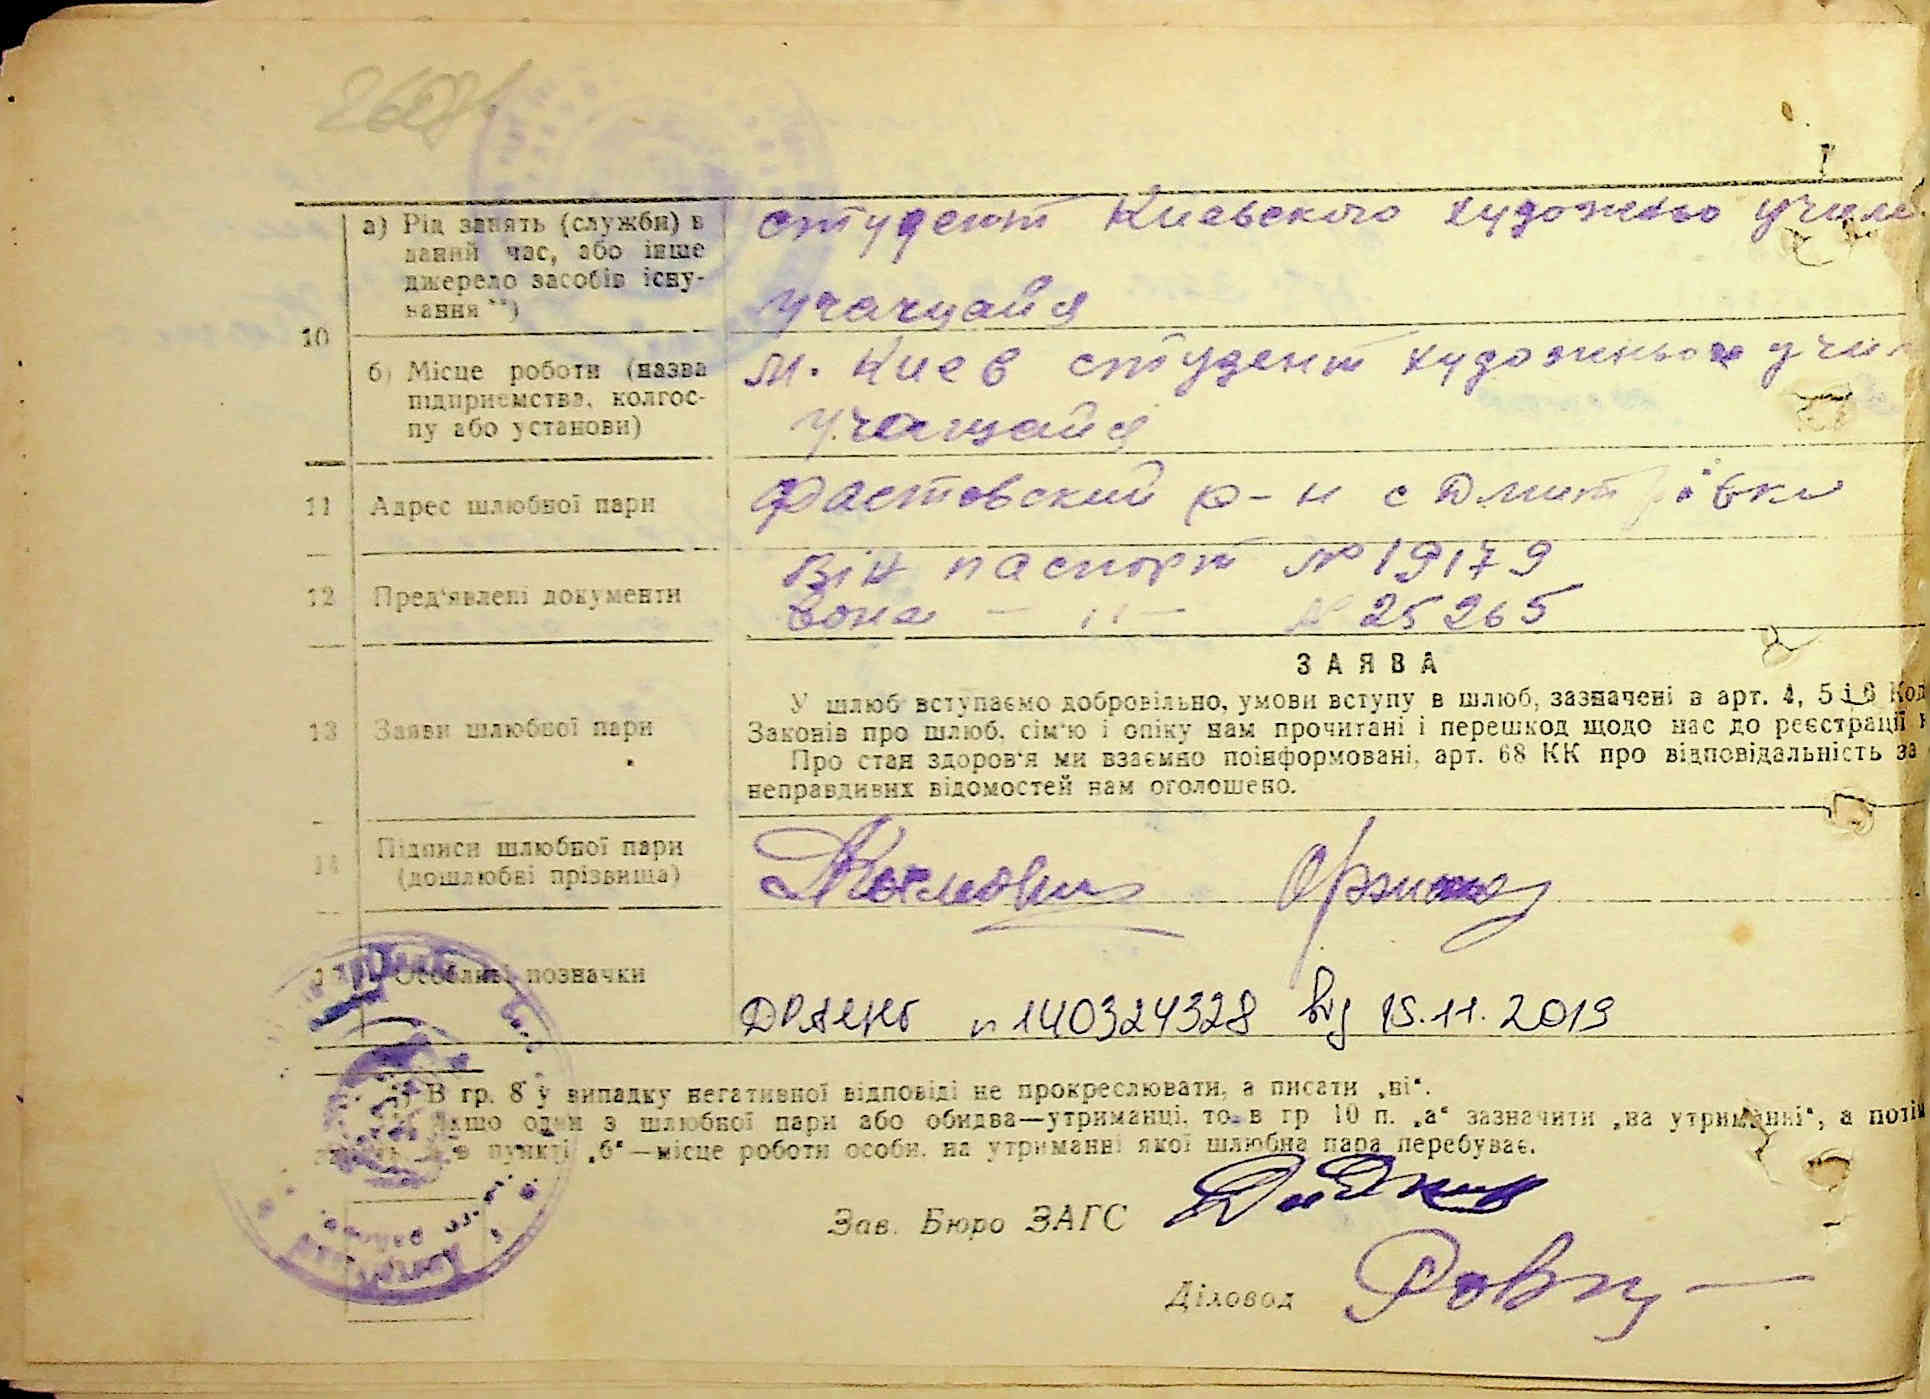 10
а) Рід занять (служби) в
даний час, або інше
джерело засобів існу-
вання **)
студент Киевского художньо учил
учащайя
б) Місце роботи (назва
підприємства, колгос-
пу або установи)
м. Киев студент художньо учил
учащайя
11 Адрес шлюбної пари
Фастовский р-н с Дмитрівки
12 Пред'явлені документи
Він паспорт № 19179
Вона — " — № 25265
13 Заяви шлюбної пари
ЗАЯВА
У шлюб вступаємо добровільно, умови вступу в шлюб, зазначені в арт. 4, 5 і 6 Код
Законів про шлюб, сім'ю і опіку нам прочитані і перешкод щодо нас до реєстрації
Про стан здоров'я ми взаємно поінформовані, арт. 68 КК про відповідальність за
неправдивих відомостей нам оголошено.
14 Підписи шлюбної пари
(дошлюбні прізвища)
Особливі позначки
n 140324328 від 15.11.2019
*) В гр. 8 у випадку негативної відповіді не прокреслювати, а писати „ні“.
Якщо один з шлюбної пари або обидва—утриманці, то в гр 10 п. „а“ зазначити „на утриманні“, а потім
в пункті „б“—місце роботи особи, на утриманні якої шлюбна пара перебуває.
Зав. Бюро ЗАГС
Діловод